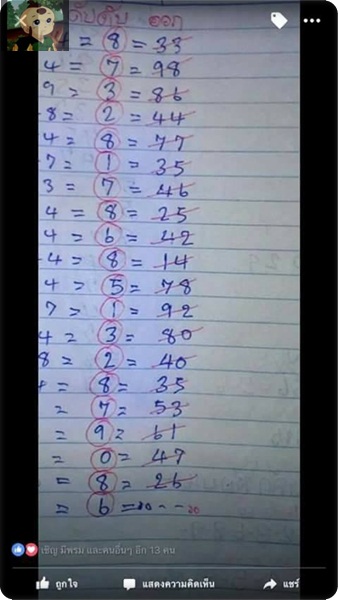 ดับดับ ออก
= 8 = 33
4 = 7 = 98
9 = 3 = 86
8 = 2 = 44
4 = 8 = 77
7 = 1 = 35
3 = 7 = 46
4 = 8 = 25
4 = 6 = 42
4 = 8 = 14
4 = 5 = 78
7 = 1 = 92
4 = 3 = 80
8 = 2 = 40
= 8 = 35
= 7 = 53
= 9 = 61
= 0 = 47
= 8 = 26
= 6 =
เชิญ มีพรม และคนอื่นๆ อีก 13 คน
ถูกใจ แสดงความคิดเห็น แชร์